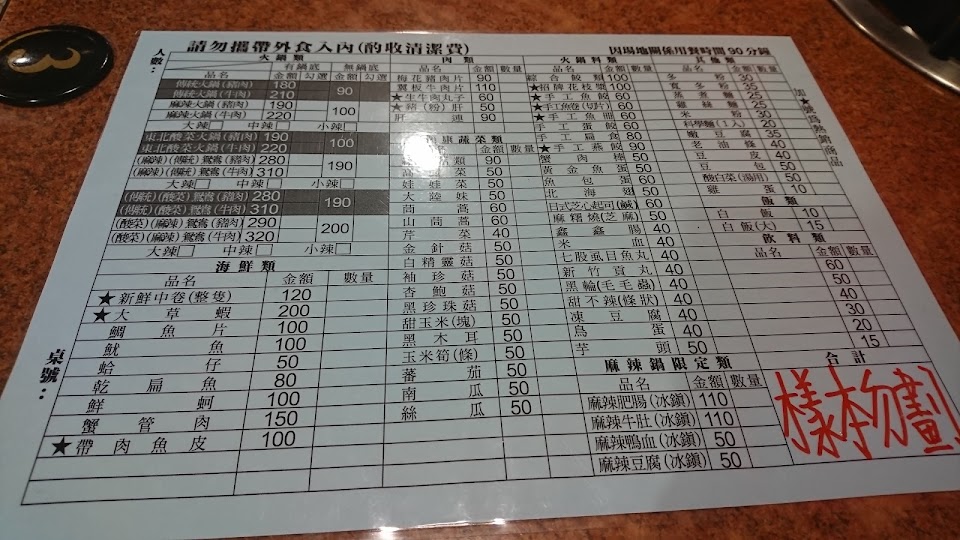 請勿攜帶外食入內(酌收清潔費)
因場地關係用餐時間90分鐘
人數：
桌號：
火鍋類 有鍋底 無鍋底
品名 金額 勾選 金額 勾選
傳統火鍋(豬肉) 180 90
傳統火鍋(牛肉) 210
麻辣火鍋(豬肉) 190 100
麻辣火鍋(牛肉) 220
大辣 中辣 小辣
東北酸菜火鍋(豬肉) 190 100
東北酸菜火鍋(牛肉) 220
(麻辣)(傳統)鴛鴦(豬肉) 280 190
(麻辣)(傳統)鴛鴦(牛肉) 310
大辣 中辣 小辣
(傳統)(酸菜)鴛鴦(豬肉) 280 190
(傳統)(酸菜)鴛鴦(牛肉) 310
(酸菜)(麻辣)鴛鴦(豬肉) 290 200
(酸菜)(麻辣)鴛鴦(牛肉) 320
大辣 中辣 小辣
海鮮類
品名 金額 數量
★新鮮中卷(整隻) 120
★大草蝦 200
鯛魚片 100
魷魚 100
蛤仔 50
乾扁魚 80
鮮蚵 100
蟹管肉 150
★帶肉魚皮 100
肉類
品名 金額 數量
梅花豬肉片 90
翼板牛肉片 110
★生牛肉丸子 60
★豬(粉)肝 50
肝連 90
健康蔬菜類
金額 數量
類 90
高麗菜 50
娃娃菜 50
大陸妹 50
茼蒿 60
山茼蒿 60
芹菜 40
金針菇 50
白精靈菇 50
袖珍菇 50
杏鮑菇 50
黑珍珠菇 50
甜玉米(塊) 50
黑木耳 50
玉米筍(條) 50
蕃茄 50
南瓜 50
絲瓜 50
火鍋料類
品名 金額 數量
綜合餃類 100
★招牌花枝漿 100
★手工魚餃 60
★手工魚卷(切片) 60
★手工魚冊 60
手工蛋餃 60
手工扁食 80
★手工燕餃 90
蟹肉棒 50
黃金魚蛋 50
魚包蛋 60
北海翅 50
日式芝心起司(鹹) 60
麻糬燒(芝麻) 50
鑫鑫腸 40
米血 40
七股虱目魚丸 40
新竹貢丸 40
黑輪(毛毛蟲) 40
甜不辣(條狀) 40
凍豆腐 40
鳥蛋 40
芋頭 50
麻辣鍋限定類
品名 金額 數量
麻辣肥腸(冰鎮) 110
麻辣牛肚(冰鎮) 110
麻辣鴨血(冰鎮) 50
麻辣豆腐(冰鎮) 50
其他類
品名 金額 數量
冬粉 30
寬冬粉 35
蒸煮麵 25
雞絲麵 25
米粉 30
科學麵(1人) 20
嫩豆腐 35
老油條 40
豆皮 40
豆包 50
酸白菜(湯用) 50
雞蛋 10
飯類
白飯 10
白飯(大) 15
飲料類
品名 金額 數量
60
50
40
30
20
15
合計
樣本勿劃
加★號為熱銷商品